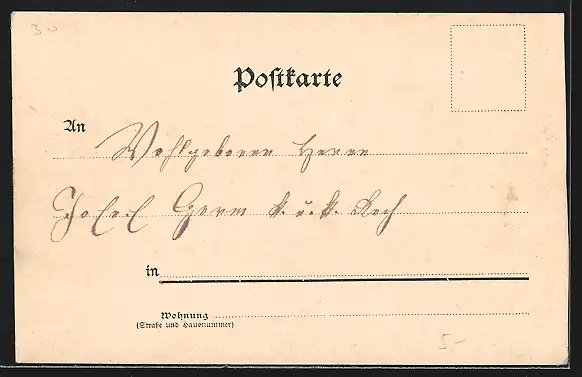 30
Postkarte
An Wohlgeboren Herrn
Josef k. u. k.
in
Wohnung
(Straße und Hausnummer)
5-